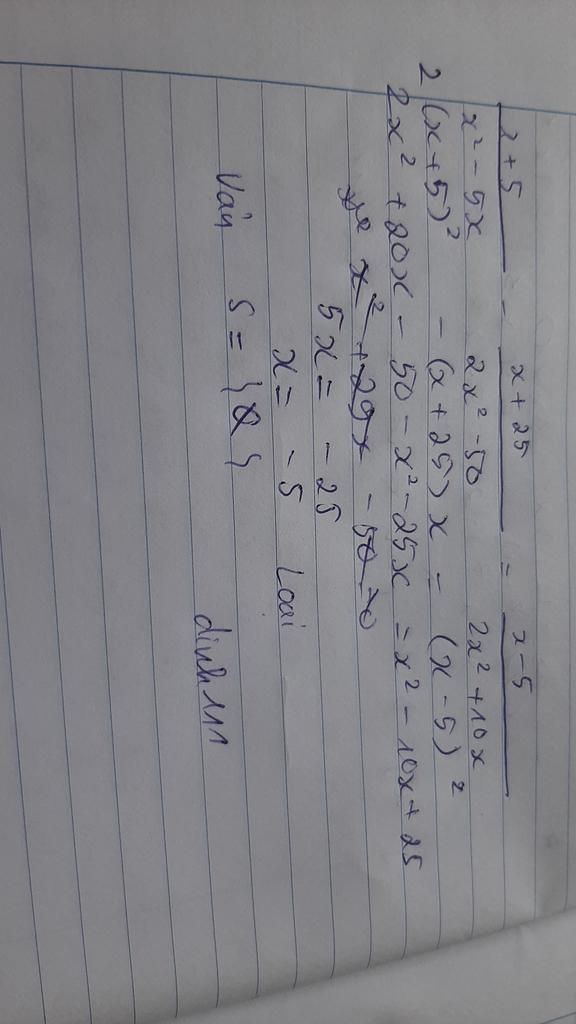 x+5 / x² - 5x - x + 25 / 2x² - 50 = x - 5 / 2x² + 10x
2 (x+5)² - (x + 25) x = (x - 5)²
2x² + 20x - 50 - x² - 25x = x² - 10x + 25
x² + 25x - 50 = 0
5x = - 25
x = - 5 Loại
Vậy S = {∅}